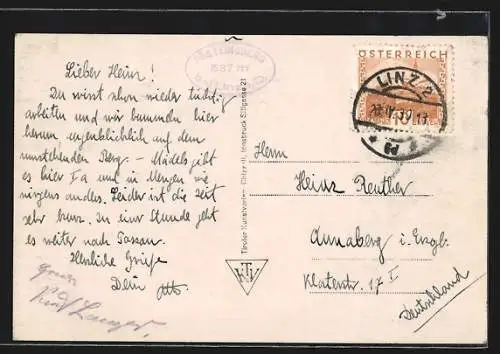 Lieber Heinz!
Du wirst schon wieder tüchtig
arbeiten und wir bummeln hier
herum, augenblicklich auf dem
umstehenden Berg – Mädels gibt
es hier Ia und in Mengen wie
nirgens anders. Leider ist die Zeit
sehr kurz. In einer Stunde geht
es weiter nach Passau.
Herzliche Grüße
Dein Otto
Kurt
ÖSTERREICH
LINZ 2
Herrn
Heinz Reuther
Annaberg i. Erzgb.
17 I
Deutschland
Tiroler Kunstverlag Chizzali, Innsbruck Sillgasse 21
TKV
537 m